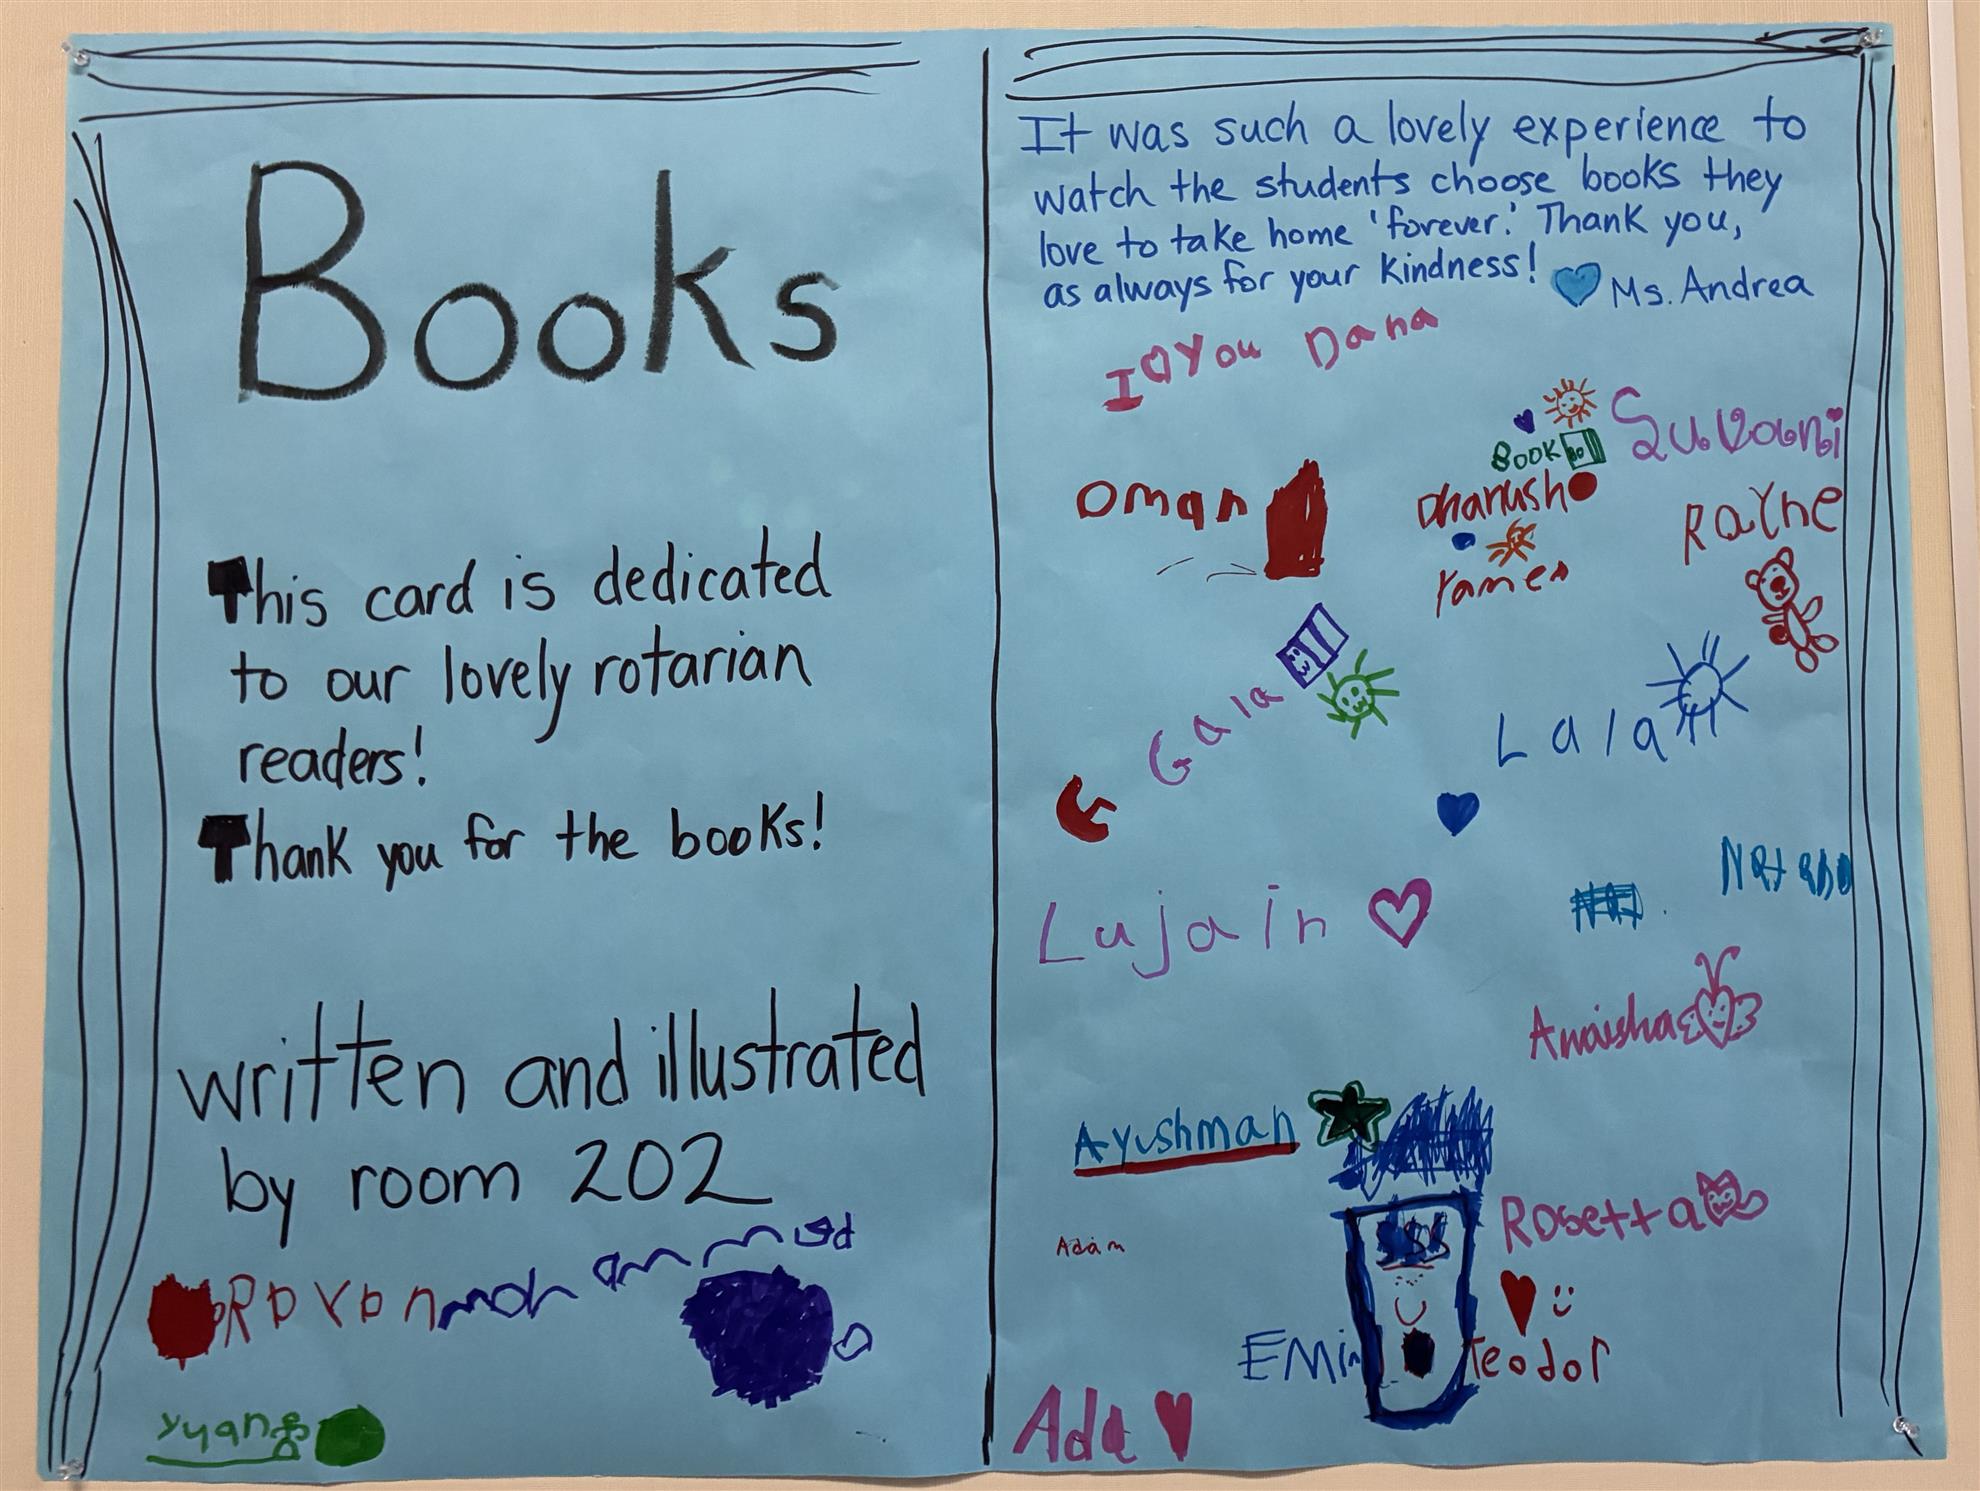 Books
This card is dedicated
to our lovely rotarian
readers!
Thank you for the books!
written and illustrated
by room 202
Rayan
mohammed
yuang
It was such a lovely experience to
watch the students choose books they
love to take home 'forever.' Thank you,
as always for your kindness! Ms. Andrea
I You Dana
BOOK
Suvani
Oman
Dhanush
Rayne
Yamen
Gala
Lala
Lujain
Anaisha
Ayushman
Adam
Rosetta
EMin
Teodor
Ada